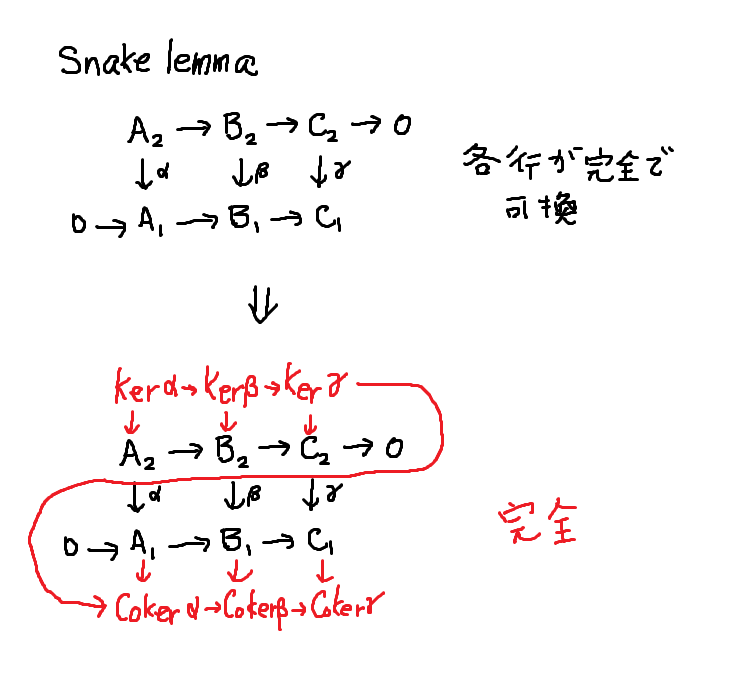 Snake lemma
A₂ → B₂ → C₂ → 0
↓α ↓β ↓γ
0 → A₁ → B₁ → C₁
各行が完全で
可換
⇓
Ker α → Ker β → Ker γ
↓ ↓ ↓
A₂ → B₂ → C₂ → 0
↓α ↓β ↓γ
完全
0 → A₁ → B₁ → C₁
↓ ↓ ↓
Coker α → Coker β → Coker γ